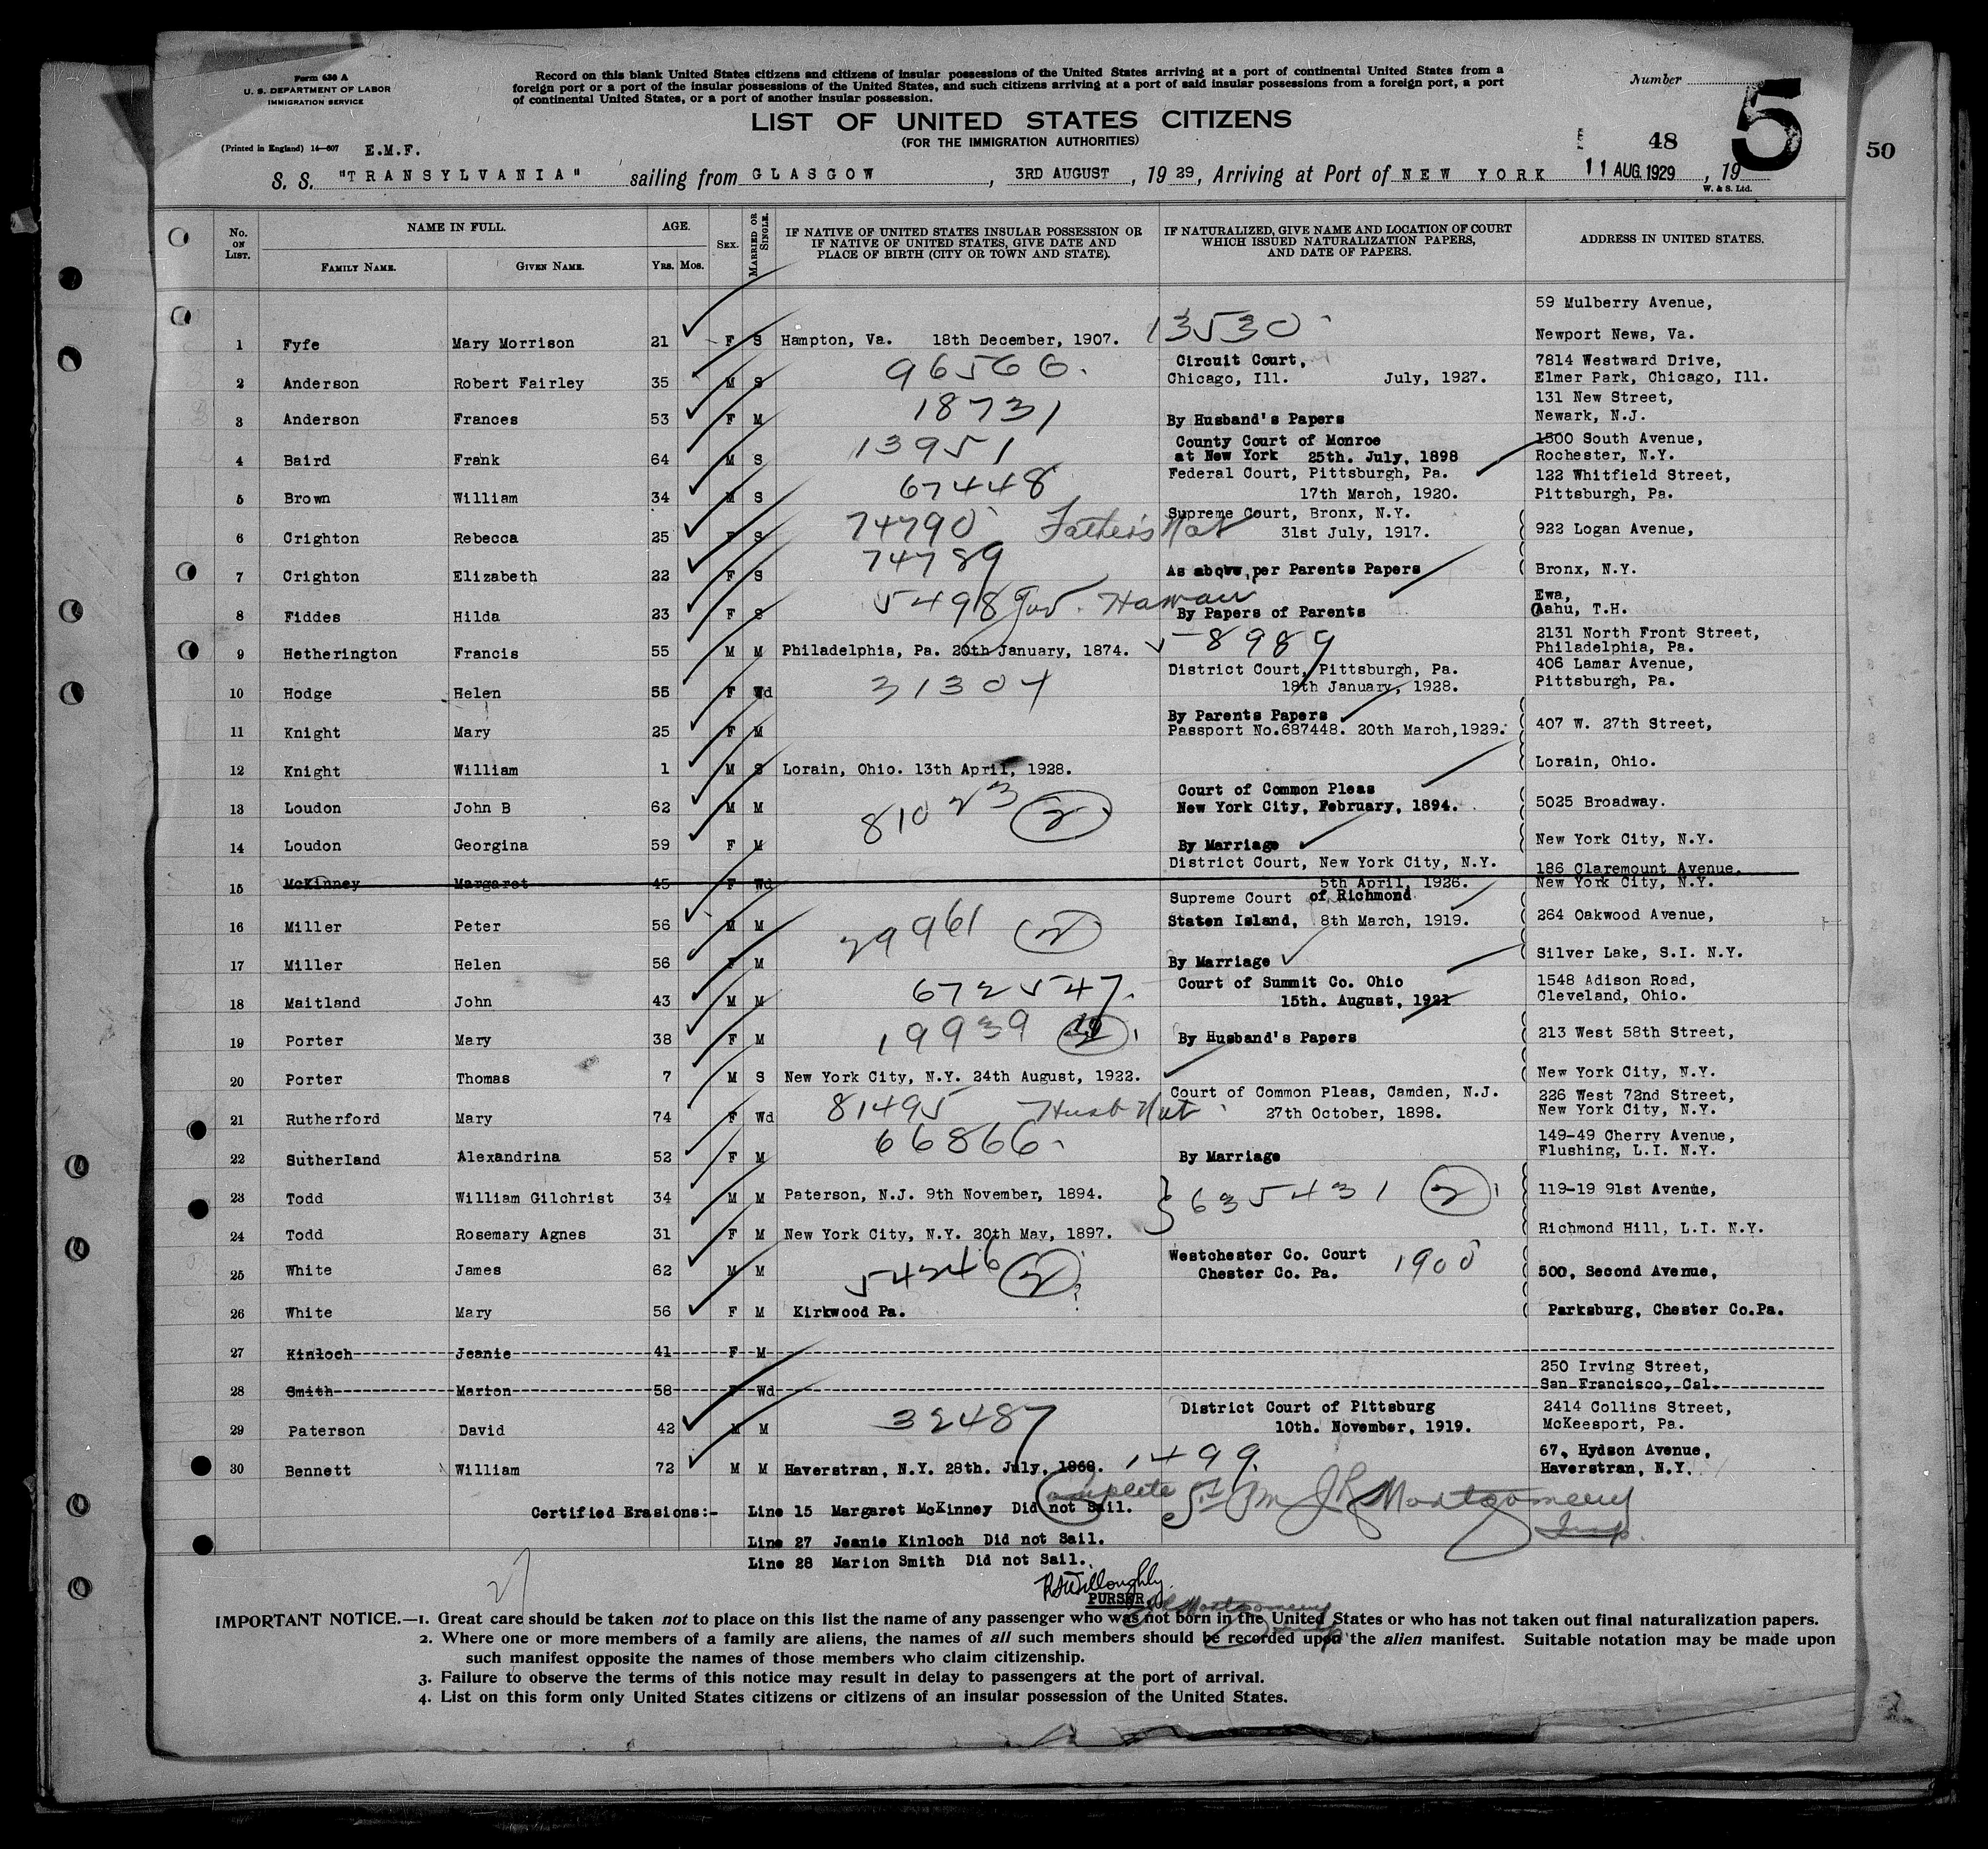 Form 630 A
U. S. DEPARTMENT OF LABOR
IMMIGRATION SERVICE
(Printed in England) 14—607
E.M.F.
Record on this blank United States citizens and citizens of insular possessions of the United States arriving at a port of continental United States from a
foreign port or a port of the insular possessions of the United States, and such citizens arriving at a port of said insular possessions from a foreign port, a port
of continental United States, or a port of another insular possession.
Number
5
LIST OF UNITED STATES CITIZENS
(FOR THE IMMIGRATION AUTHORITIES)
48
50
S. S. "TRANSYLVANIA" sailing from GLASGOW, 3RD AUGUST, 1929, Arriving at Port of NEW YORK 11 AUG. 1929, 19
W. & S. Ltd.
No. ON LIST. NAME IN FULL. FAMILY NAME. GIVEN NAME. AGE. YRS. MOS. SEX. MARRIED OR SINGLE. IF NATIVE OF UNITED STATES INSULAR POSSESSION OR IF NATIVE OF UNITED STATES, GIVE DATE AND PLACE OF BIRTH (CITY OR TOWN AND STATE). IF NATURALIZED, GIVE NAME AND LOCATION OF COURT WHICH ISSUED NATURALIZATION PAPERS, AND DATE OF PAPERS. ADDRESS IN UNITED STATES.
59 Mulberry Avenue,
1 Fyfe Mary Morrison 21 F S Hampton, Va. 18th December, 1907. 13530 Newport News, Va.
Circuit Court, 7814 Westward Drive,
2 Anderson Robert Fairley 35 M S 96566. Chicago, Ill. July, 1927. Elmer Park, Chicago, Ill.
131 New Street,
3 Anderson Frances 53 F M 18731 By Husband's Papers Newark, N.J.
County Court of Monroe 1500 South Avenue,
4 Baird Frank 64 M S 13951 at New York 25th. July, 1898 Rochester, N.Y.
Federal Court, Pittsburgh, Pa. 122 Whitfield Street,
5 Brown William 34 M S 67448 17th March, 1920. Pittsburgh, Pa.
Supreme Court, Bronx, N.Y.
6 Crighton Rebecca 25 F S 74790 Father's Nat 31st July, 1917. 922 Logan Avenue,
7 Crighton Elizabeth 22 F S 74789 As above, per Parents Papers Bronx, N.Y.
Ewa,
8 Fiddes Hilda 23 F S 5498 Gov. Hawaii By Papers of Parents Oahu, T.H.
2131 North Front Street,
9 Hetherington Francis 55 M M Philadelphia, Pa. 20th January, 1874. 58989 Philadelphia, Pa.
District Court, Pittsburgh, Pa. 406 Lamar Avenue,
10 Hodge Helen 55 F Wd 31304 18th January, 1928. Pittsburgh, Pa.
By Parents Papers
11 Knight Mary 25 F M Passport No.687448. 20th March,1929. 407 W. 27th Street,
12 Knight William 1 M S Lorain, Ohio. 13th April, 1928. Lorain, Ohio.
Court of Common Pleas
13 Loudon John B 62 M M 81023 (2) New York City, February, 1894. 5025 Broadway.
14 Loudon Georgina 59 F M By Marriage New York City, N.Y.
District Court, New York City, N.Y. 186 Claremount Avenue,
15 McKinney Margaret 45 F Wd 5th April, 1926. New York City, N.Y.
Supreme Court of Richmond
16 Miller Peter 56 M M 29961 (2) Staten Island, 8th March, 1919. 264 Oakwood Avenue,
17 Miller Helen 56 F M By Marriage Silver Lake, S.I. N.Y.
Court of Summit Co. Ohio 1548 Adison Road,
18 Maitland John 43 M M 672547. 15th. August, 1921 Cleveland, Ohio.
19 Porter Mary 38 F M 19939 By Husband's Papers 213 West 58th Street,
20 Porter Thomas 7 M S New York City, N.Y. 24th August, 1922. New York City, N.Y.
Court of Common Pleas, Camden, N.J. 226 West 72nd Street,
21 Rutherford Mary 74 F Wd 81495 Husb Nat 27th October, 1898. New York City, N.Y.
149-49 Cherry Avenue,
22 Sutherland Alexandrina 52 F M 66866. By Marriage Flushing, L.I. N.Y.
23 Todd William Gilchrist 34 M M Paterson, N.J. 9th November, 1894. 635431 (2) 119-19 91st Avenue,
24 Todd Rosemary Agnes 31 F M New York City, N.Y. 20th May, 1897. Richmond Hill, L.I. N.Y.
Westchester Co. Court 1900
25 White James 62 M M 54246 (2) Chester Co. Pa. 500, Second Avenue,
26 White Mary 56 F M Kirkwood Pa. Parksburg, Chester Co.Pa.
27 Kinloch Jeanie 41 F M
250 Irving Street,
28 Smith Marion 58 F Wd San Francisco, Cal.
District Court of Pittsburg 2414 Collins Street,
29 Paterson David 42 M M 32487 10th. November, 1919. McKeesport, Pa.
67, Hydson Avenue,
30 Bennett William 72 M M Haverstran, N.Y. 28th. July, 1868. 1499. Haverstran, N.Y.
Complete
Certified Erasions:- Line 15 Margaret McKinney Did not Sail. J R Montgomery
Insp.
Line 27 Jeanie Kinloch Did not Sail.
Line 28 Marion Smith Did not Sail.
Willoughly
PURSER
IMPORTANT NOTICE.—1. Great care should be taken not to place on this list the name of any passenger who was not born in the United States or who has not taken out final naturalization papers.
2. Where one or more members of a family are aliens, the names of all such members should be recorded upon the alien manifest. Suitable notation may be made upon
such manifest opposite the names of those members who claim citizenship.
3. Failure to observe the terms of this notice may result in delay to passengers at the port of arrival.
4. List on this form only United States citizens or citizens of an insular possession of the United States.